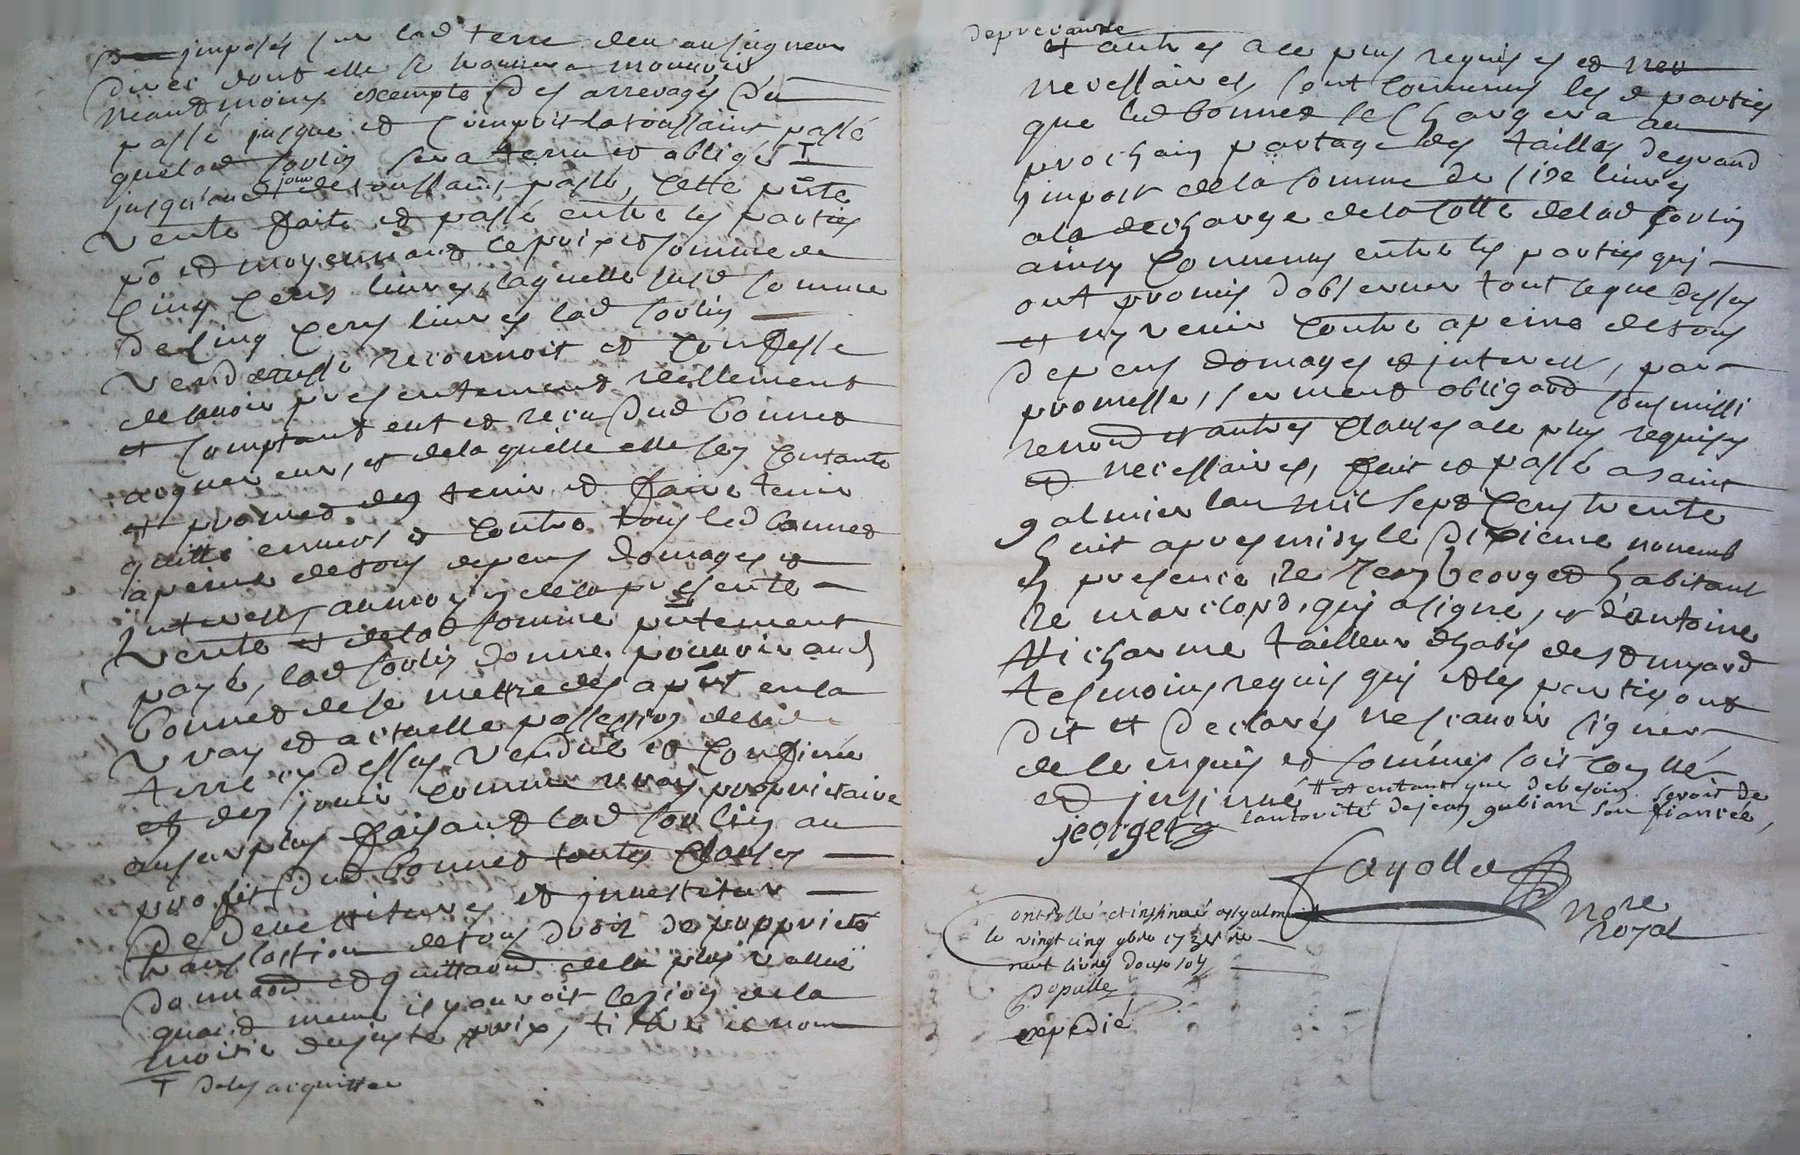 imposés sur lad terre deu au seigneur
direct dont elle se trouvera mouvoir
neandmoins exempte des arrerages du
passé jusque et compris la toussaint passé
quelad soulin sera tenu et obligé T
jusqu'aud jour de toussaint passé, cette pnte
vente faite et passé entre les parties
po et moyennand le prix et somme de
cinq cens livres, laquelle susd somme
de cinq cens livres lad soulin
venderesse reconnoit et confesse
de lavoir presentement reellement
et comptant eut et receu dud bonnet
acquereur, et de la quelle elle sen contante
et promet den tenir et faire tenir
quitte envers et contre tous led bonnet
a peine de tous depens domages et
interests au moyen de la presente
vente et de lad somme pntement
payé, lad soulin donne pouvoir aud
bonnet de se mettre dès apnt en la
vray et actuelle possession de lad
terre cy dessus vendue et confinée
et den jouir comme vray proprietaire
au surplus faisant lad soulin au
profit dud bonnet toutes clauses
de devettiture et investiture
translation de tous droit de propprieté
donnand et quittand de la plus vallue
quand meme il y auroit lezion de la
moitié du juste prix, titre et nom
T de les acquitter
de precaire
et autres a ce plus requises et
necessaires, sont convenus les d parties
que led bonnet se chargera au
prochain partage des tailles de grand
impost de la somme de size livres
a la decharge de la cotte de lad soulin
ainsy convenus entre les parties qui
ont promis dobserver tout ce que dessus
et ny venir contre a peine de tous
depens domages et interest, par
promesse, serment obligand soumissi
renond et autres clauses a ce plus requises
et necessaires, fait et passé a saint
galmier lan mil sept cens trente
huit apres midy le dixieme novemb
en presence de Jean Georget habitant
de marclopd, qui a signe, et d'antoine
Micharme tailleur dhabis de st myard
tesmoins requis qui et les parties ont
dit et declarés ne scavoir signer
de ce enquis et sommés soit controllé
et insinué # et entant que de besoin seroit de
lautorité de jean gubian son fiancée,
jeorget
fayolle
nore
royal
Controllé et insinué a st galmier
le vingt cinq gbre 1738 Re
neuf livres douze sols
expedié